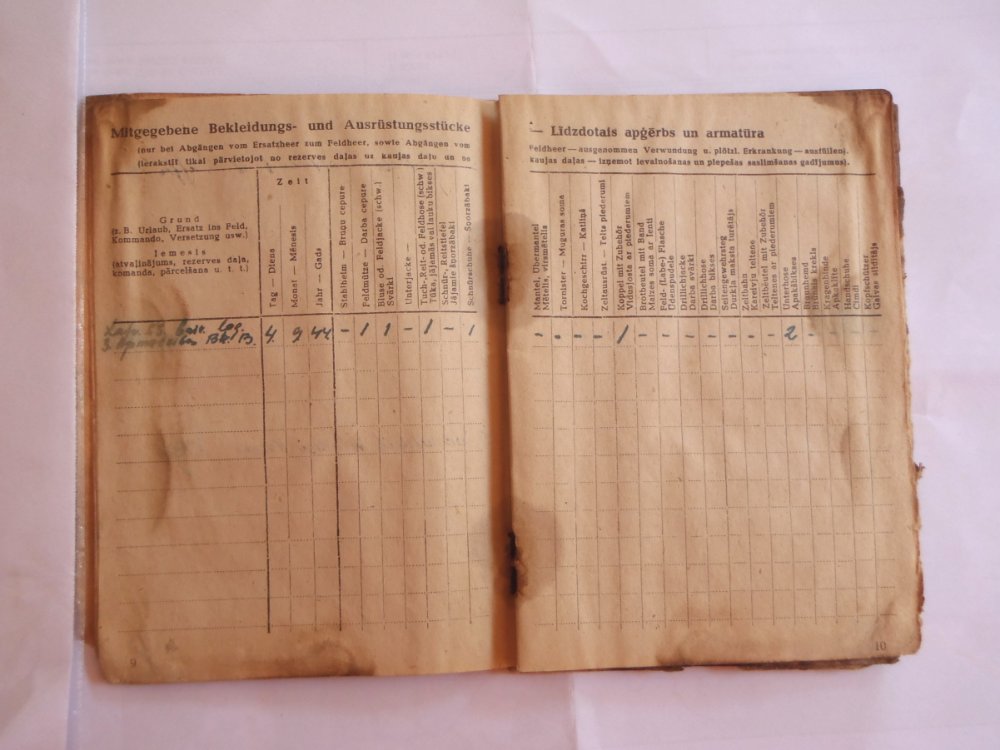 Mitgegebene Bekleidungs- und Ausrüstungsstücke
(nur bei Abgängen vom Ersatzheer zum Feldheer, sowie Abgängen vom
(Ierakstīt tikai pārvietojot no rezerves daļas uz kaujas daļu un no
Grund
(z. B. Urlaub, Ersatz ins Feld.
Kommando, Versetzung usw.)
Iemesls
(atvaļinājums, rezerves daļa,
komanda, pārcelšana u. t. t.)
Zeit
Tag — Diena
Monat — Mēnesis
Jahr — Gads
Stahlhelm — Bruņu cepure
Feldmütze — Darba cepure
Bluse od. Feldjacke (schw.)
Svārki
Unterjacke —
Tuch-,Reit-od. Feldhose (schw.)
Tūka, jājamās vai lauku bikses
Schnür-, Reitstiefel
Jājamie šņorzābaki
Schnürschuhe — Šņorzābaki
4. 9 44 – 1 1 – 1 – 1
9
— Līdzdotais apģērbs un armatūra
Feldheer — ausgenommen Verwundung u. plötzl. Erkrankung — ausfüllen).
kaujas daļas — izņemot ievainošanas un piepešas saslimšanas gadījumus).
Mantel, Übermantel
Mētelis, virsmētelis
Tornister — Muguras soma
Kochgeschirr — Katliņš
Zeltausrüst - Telts piederumi
Koppel mit Zubehör
Vidusjosta ar piederumiem
Brotbeutel mit Band
Maizes soma ar lenti
Feld- (Labe-) Flasche
Ūdenspudele
Drillichjacke
Darba svārki
Drillichhose
Darba bikses
Seitengewehrsteg
Durkļa maksts turētājs
Zeltbahn
Kareivju teltene
Zeltbeutel mit Zubehör
Teltenas ar piederumiem
Unterhose
Apakšbikses
Braunhemd
Brūnais krekls
Kragenbinde
Apkaklīte
Handschuhe
Cimdi
Kopfschützer
Galvas sildītājs
– – – – 1 – – – – – – – 2 –
10